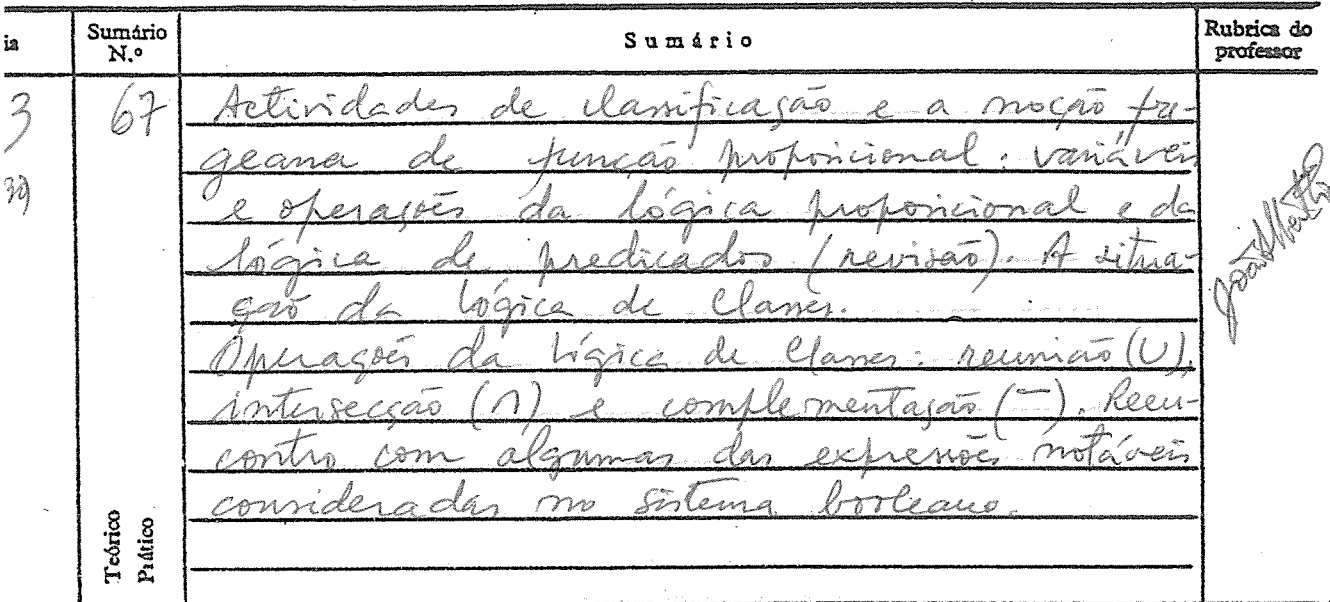 ia
Sumário
N.º
Sumário
Rubrica do
professor
3
39)
67
Actividades de classificação e a noção fre-
geana de função proposicional: variáveis
e operações da lógica proposicional e da
lógica de predicados (revisão). A situa-
ção da lógica de Classes.
Operações da lógica de Classes: reunião (U),
intersecção (∩) e complementação (‾). Reen-
contro com algumas das expressões notáveis
consideradas no sistema booleano.
Teórico
Prático